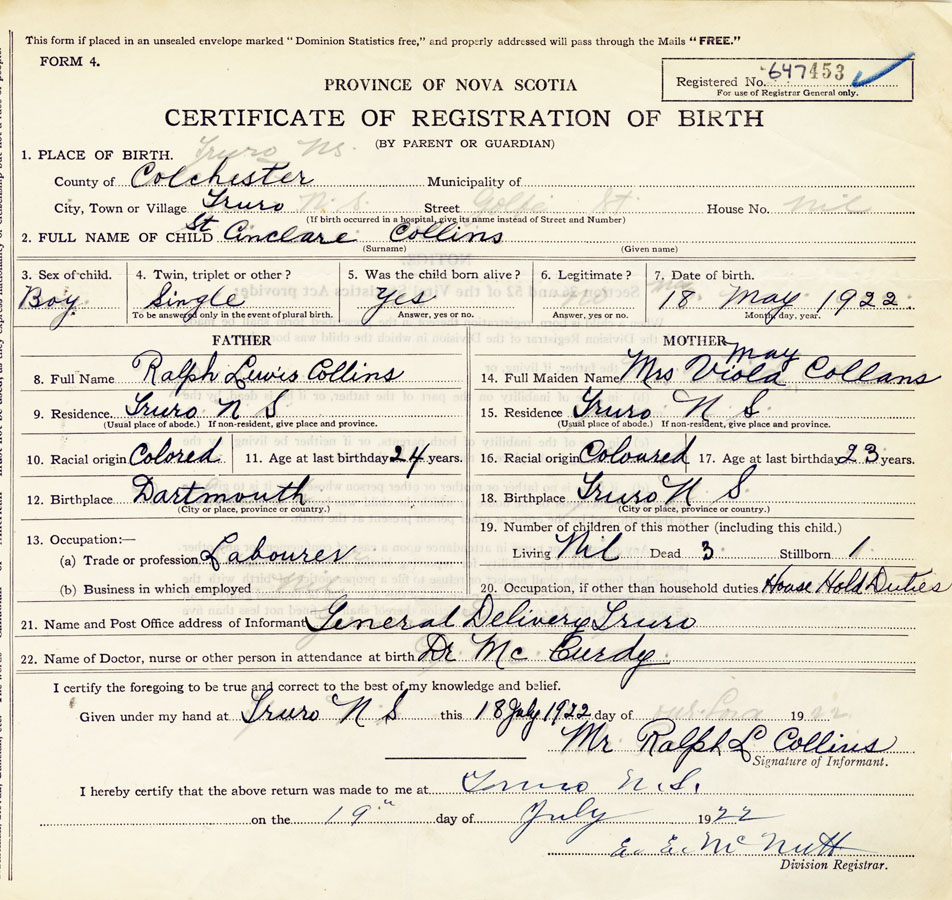 This form if placed in an unsealed envelope marked "Dominion Statistics free," and properly addressed will pass through the Mails "FREE."
FORM 4.
Registered No. 647453
For use of Registrar General only.
PROVINCE OF NOVA SCOTIA
CERTIFICATE OF REGISTRATION OF BIRTH
(BY PARENT OR GUARDIAN)
1. PLACE OF BIRTH. Truro Ns.
County of Colchester Municipality of
City, Town or Village Truro N.S. Street St House No. nil
(If birth occurred in a hospital, give its name instead of Street and Number)
2. FULL NAME OF CHILD St Cinclare Collins
(Surname) (Given name)
3. Sex of child. 4. Twin, triplet or other? 5. Was the child born alive? 6. Legitimate? 7. Date of birth.
Boy. Single Yes 18 May 1922.
To be answered only in the event of plural birth. Answer, yes or no. Answer, yes or no. Month, day, year.
FATHER MOTHER
8. Full Name Ralph Lewis Collins 14. Full Maiden Name Mrs Viola May Collans
9. Residence. Truro N S 15. Residence Truro N S
(Usual place of abode.) If non-resident, give place and province. (Usual place of abode.) If non-resident, give place and province.
10. Racial origin Colored 11. Age at last birthday 24 years. 16. Racial origin Coloured 17. Age at last birthday 23 years.
12. Birthplace Dartmouth 18. Birthplace Truro N S
(City or place, province or country.) (City or place, province or country.)
13. Occupation:— 19. Number of children of this mother (including this child.)
(a) Trade or profession Labourer Living Nil Dead 3 Stillborn 1
(b) Business in which employed 20. Occupation, if other than household duties House Hold Duties
21. Name and Post Office address of Informant General Delivery Truro
22. Name of Doctor, nurse or other person in attendance at birth Dr Mc Curdy.
I certify the foregoing to be true and correct to the best of my knowledge and belief.
Given under my hand at Truro N S this 18 July 1922 day of 19 22
Mr Ralph L Collins
Signature of Informant.
I hereby certify that the above return was made to me at Truro N.S.
on the 19" day of July 1922
E. E. McNutt
Division Registrar.